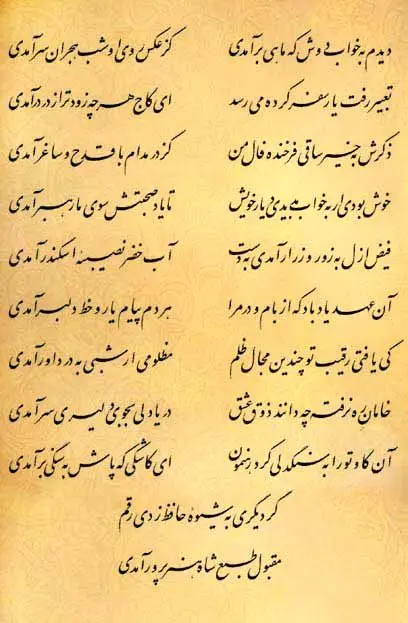 دیدم به خواب دوش که ماهی برآمدی کز عکس روی او شب هجران سرآمدی
تعبیر رفت یار سفرکرده می رسد ای کاج هر چه زودتر از در درآمدی
ذکرش به خیر ساقی فرخنده فال من کز در مدام با قدح و ساغر آمدی
خوش بودی ار به خواب بدیدی دیار خویش تا یاد صحبتش سوی ما رهبر آمدی
فیض ازل به زور و زر ار آمدی به دست آب خضر نصیبهٔ اسکندر آمدی
آن عهد یاد باد که از بام و در مرا هر دم پیام یار و خط دلبر آمدی
کی یافتی رقیب تو چندین مجال ظلم مظلومی ار شبی به در داور آمدی
خامان ره نرفته چه دانند ذوق عشق دریادلی بجوی دلیری سرآمدی
آن کاو تو را به سنگدلی کرد رهنمون ای کاشکی که پاش به سنگی برآمدی
گر دیگری به شیوهٔ حافظ زدی رقم
مقبول طبع شاه هنرپرور آمدی